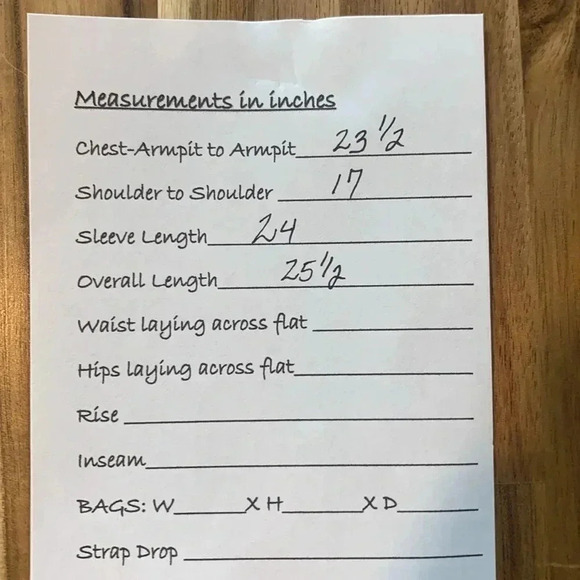 Measurements in inches
Chest-Armpit to Armpit 23 1/2
Shoulder to Shoulder 17
Sleeve Length 24
Overall Length 25 1/2
Waist laying across flat
Hips laying across flat
Rise
Inseam
BAGS: W______X H______X D______
Strap Drop